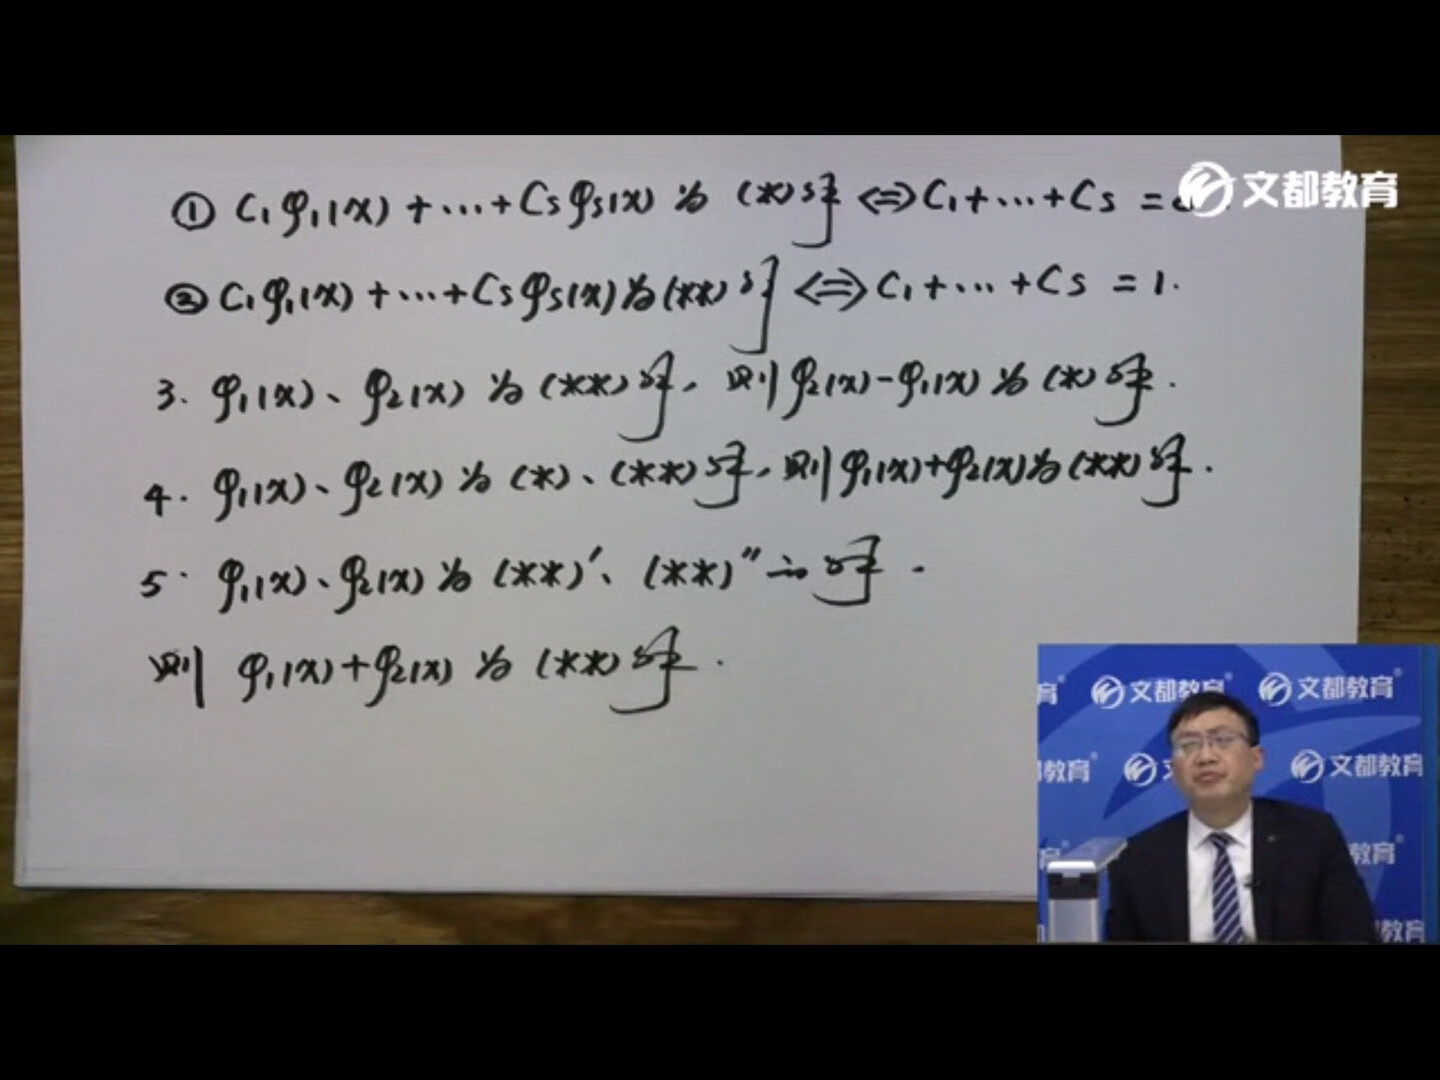 ① C₁φ₁(x)+…+Csφs(x) 为 (*)解 ⟺ C₁+…+Cs =
文都教育
② C₁φ₁(x)+…+Csφs(x)为(**)解 ⟺ C₁+…+Cs = 1.
3. φ₁(x)、φ₂(x) 为 (**)解, 则 φ₂(x)-φ₁(x) 为 (*)解.
4. φ₁(x)、φ₂(x) 为 (*)、(**)解, 则 φ₁(x)+φ₂(x)为(**)解.
5. φ₁(x)、φ₂(x) 为 (**)′、(**)″ 之解.
则 φ₁(x)+φ₂(x) 为 (**)解.
育 文都教育 文都教育
都教育 文 文都教育
育 教育
都教育